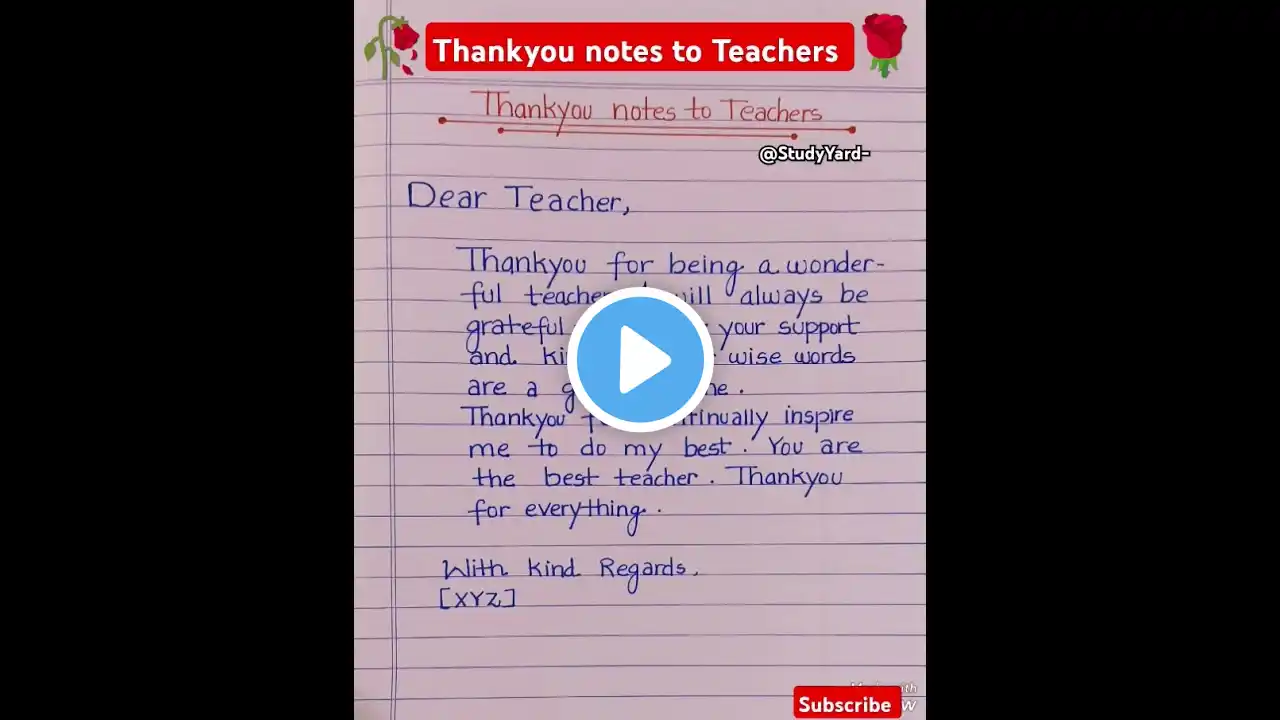 Thankyou notes to Teachers
Thankyou notes to Teachers
@StudyYard-
Dear Teacher,
Thankyou for being a wonder-
ful teacher will always be
grateful your support
and. wise words
are a
Thankyou inspire
me to do my best. You are
the best teacher. Thankyou
for everything.
With kind Regards,
[XYZ]
Subscribe